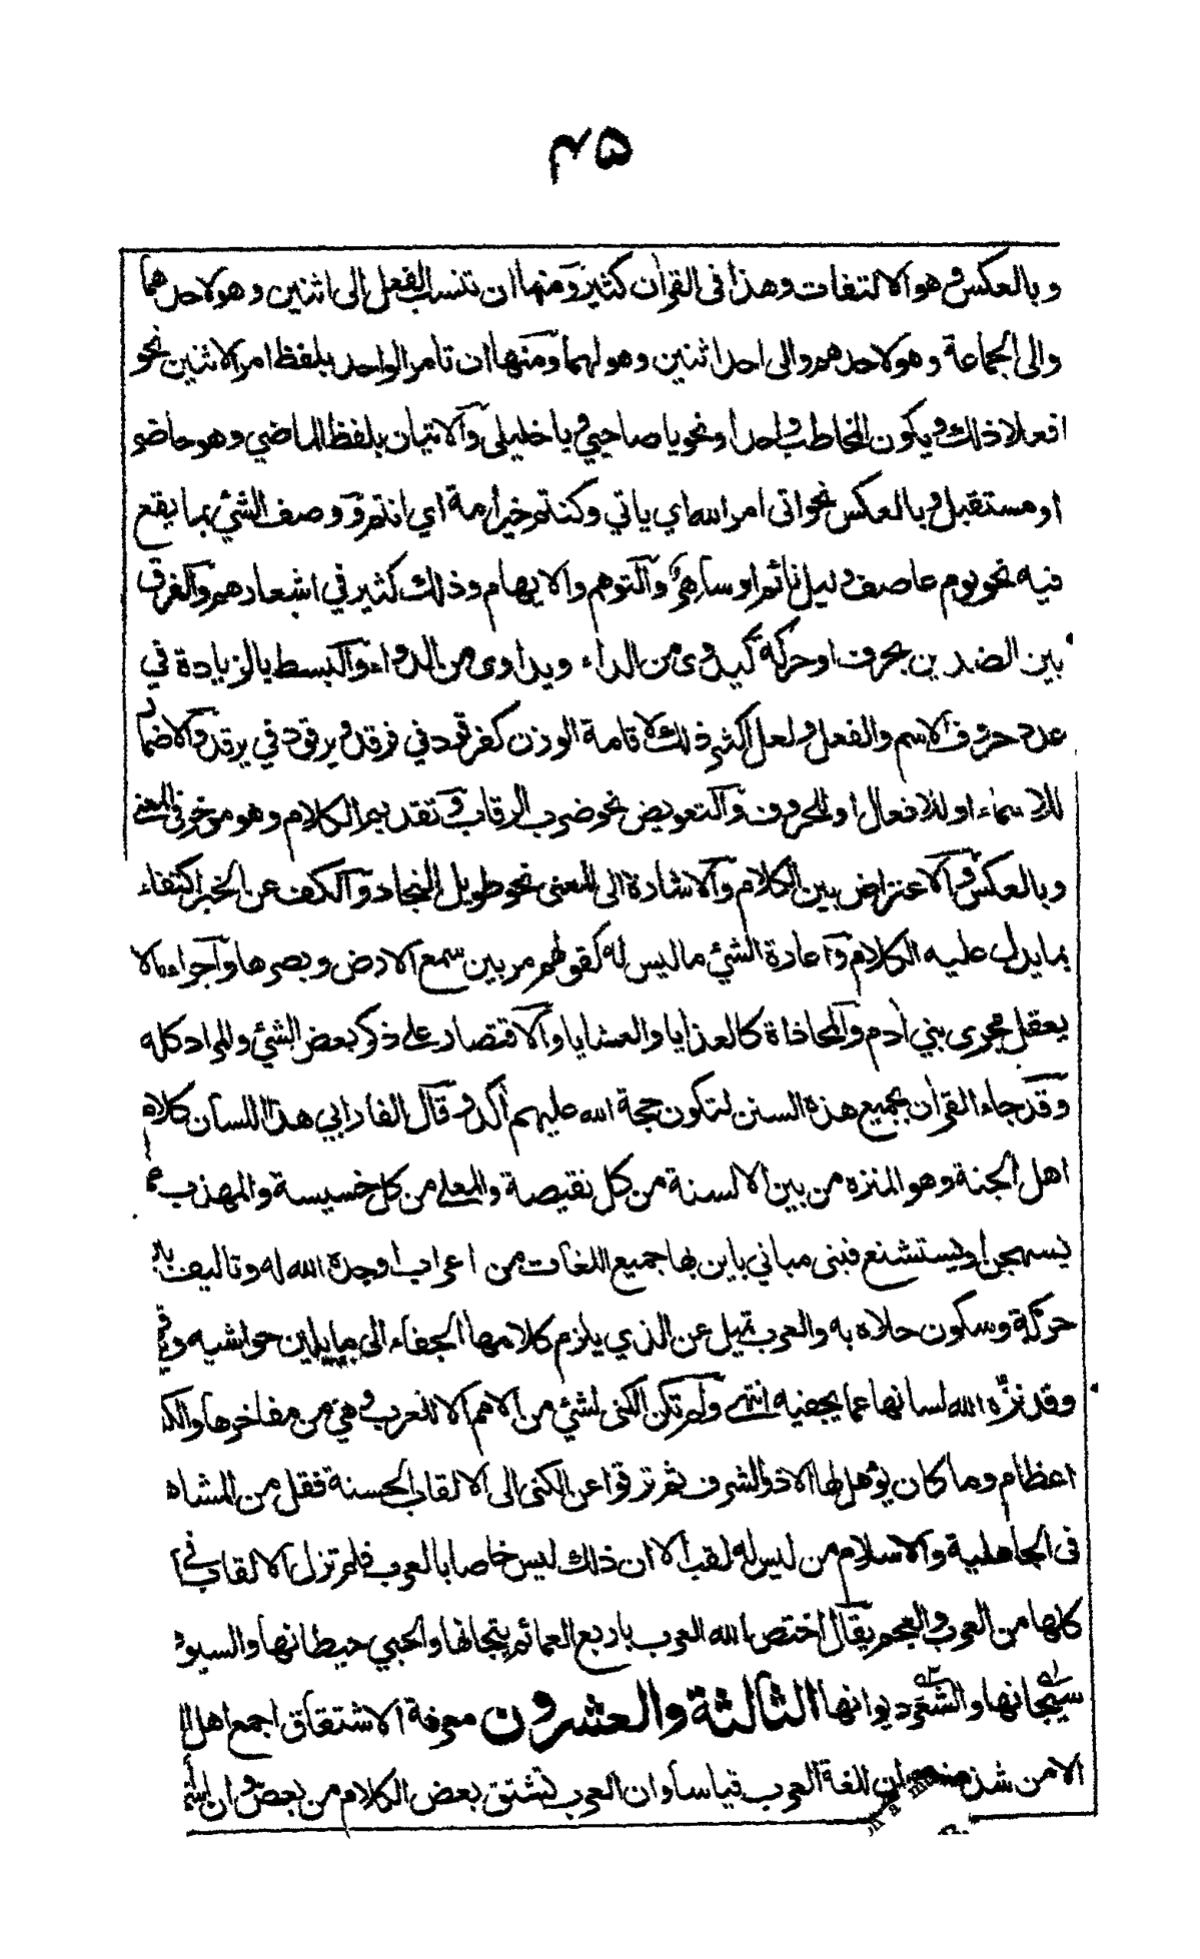 ۴۵
وبالعكس وهو الالتفات وهذا فى القرآن كثير ومنها ان تنسب الفعل الى اثنين وهو لاحدهما
والى الجماعة وهو لاحدهم والى احد اثنين وهو لهما ومنها ان تامر الواحد بلفظ امر الاثنين نحو
افعلا ذلك ويكون المخاطب واحدا ونحو يا صاحبي ويا خليلى والاتيان بلفظ الماضي وهو حاضر
او مستقبل وبالعكس نحو اتى امر الله اي ياتي وكنتم خير أمة اي انتم و وصف الشئ بما يقع
فيه نحو يوم عاصف وليل نائم او ساهر والتوهم والايهام وذلك كثير في اشعارهم والفرق
بين الضدين بحرف او حركة كيدوى من الداء ويداوى من الدواء والبسط بالزيادة في
عدد حروف الاسم والفعل ولعل اكثر ذلك لاقامة الوزن كفرقود في فرقد ويرقود في يرقد والاضمار
للاسماء او للافعال او للحروف والتعويض نحو ضرب الرقاب و تقديم الكلام وهو موخر فى المعنى
وبالعكس والاعتراض بين الكلام والاشارة الى المعنى نحو طويل النجاد والكف عن الخبر اكتفاء
بما يدل عليه الكلام و اعادة الشئ ما ليس له كقولهم مر بين سمع الارض وبصرها واجراء مالا
يعقل مجرى بني آدم والمحاذاة كالغدايا والعشايا والاقتصار على ذكر بعض الشئ والمراد كله
وقد جاء القرآن بجميع هذه السنن لتكون حجة الله عليهم أكد و قال الفارابي هذا اللسان كلام
اهل الجنة وهو المنزه من بين الالسنة من كل نقيصة والمعلى من كل خسيسة والمهذب مما
يستهجن او يستشنع فبنى مباني باين بها جميع اللغات من اعراب اوجده الله له وتاليف بين
حركة وسكون حلاه به والعرب تميل عن الذي يلزم كلامها الجفاء الى ما يلين حواشيه
وقد نزّه الله لسانها عما يجفيه انتهى ولم تكن الكنى لشئ من الامم الا للعرب وهي من مفاخرها
اعظام وما كان يؤهل لها الا ذو الشرف ثم ترقوا عن الكنى الى الالقاب الحسنة فقل من المشاه
فى الجاهلية والاسلام من ليس له لقب الا ان ذلك ليس خاصا بالعرب فلم تزل الالقاب في
كلها من العرب والعجم يقال اختص الله العرب باربع العمائم تيجانها والحبي حيطانها والسيوف
سيجانها والشعر ديوانها الثالثة والعشرون معرفة الاشتقاق اجمع اهل
الا من شذ منهم ان للغة العرب قياسا وان العرب تشتق بعض الكلام من بعض وان